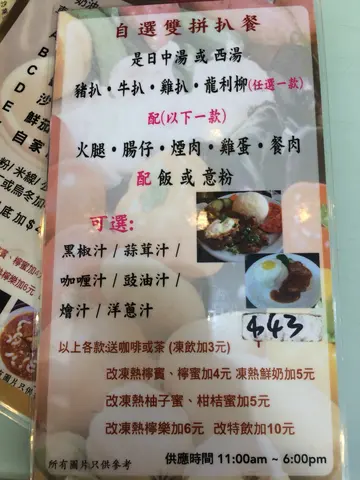 自選雙拼扒餐
是日中湯 或 西湯
豬扒 · 牛扒 · 雞扒 · 龍利柳(任選一款)
配(以下一款)
火腿 · 腸仔 · 煙肉 · 雞蛋 · 餐肉
配 飯 或 意粉
可選:
黑椒汁 / 蒜茸汁 /
咖喱汁 / 豉油汁 /
燴汁 / 洋蔥汁
$43
以上各款:送咖啡或茶 (凍飲加3元)
改凍熱檸賓、檸蜜加4元 凍熱鮮奶加5元
改凍熱柚子蜜、柑桔蜜加5元
改凍熱檸樂加6元 改特飲加10元
所有圖片只供參考
供應時間 11:00am ~ 6:00pm
A
B
C
D
E
沙
鮮茄
自家
粉/米線/
或烏冬加
底加$4
檸蜜加4
檸樂加6